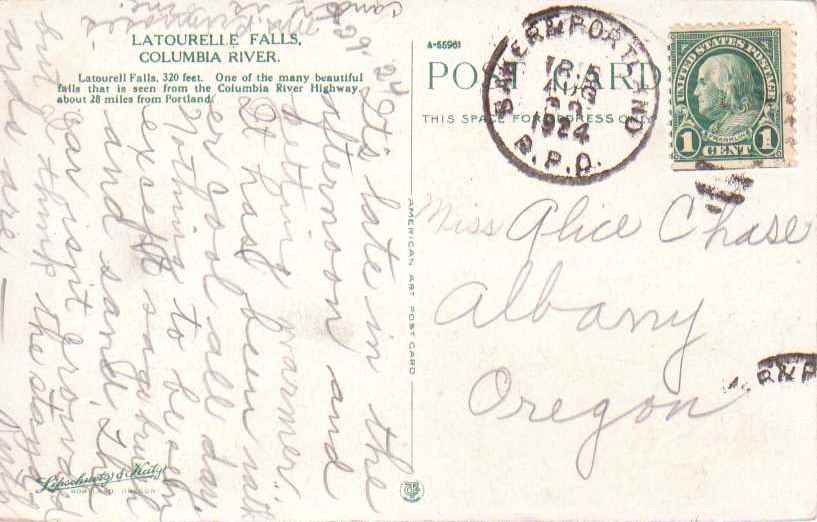 LATOURELLE FALLS,
COLUMBIA RIVER.
Latourell Falls, 320 feet. One of the many beautiful
falls that is seen from the Columbia River Highway,
about 28 miles from Portland.
A-66961
POST CARD
THIS SPACE FOR ADDRESS ONLY
AMERICAN ART POST CARD
& PORTLAND
1924
R.P.O.
UNITED STATES POSTAGE
FRANKLIN
1 CENT 1
Miss Alice Chase
Albany
Oregon
Its late in the
afternoon and
getting warmer.
It has been rath
er cool all day.
Nothing to be seen
except sagebrush
and sand. The
car isn't crowded
but I think the
and are
Lipschuetz & Katz
PORTLAND, OREGON
R.P